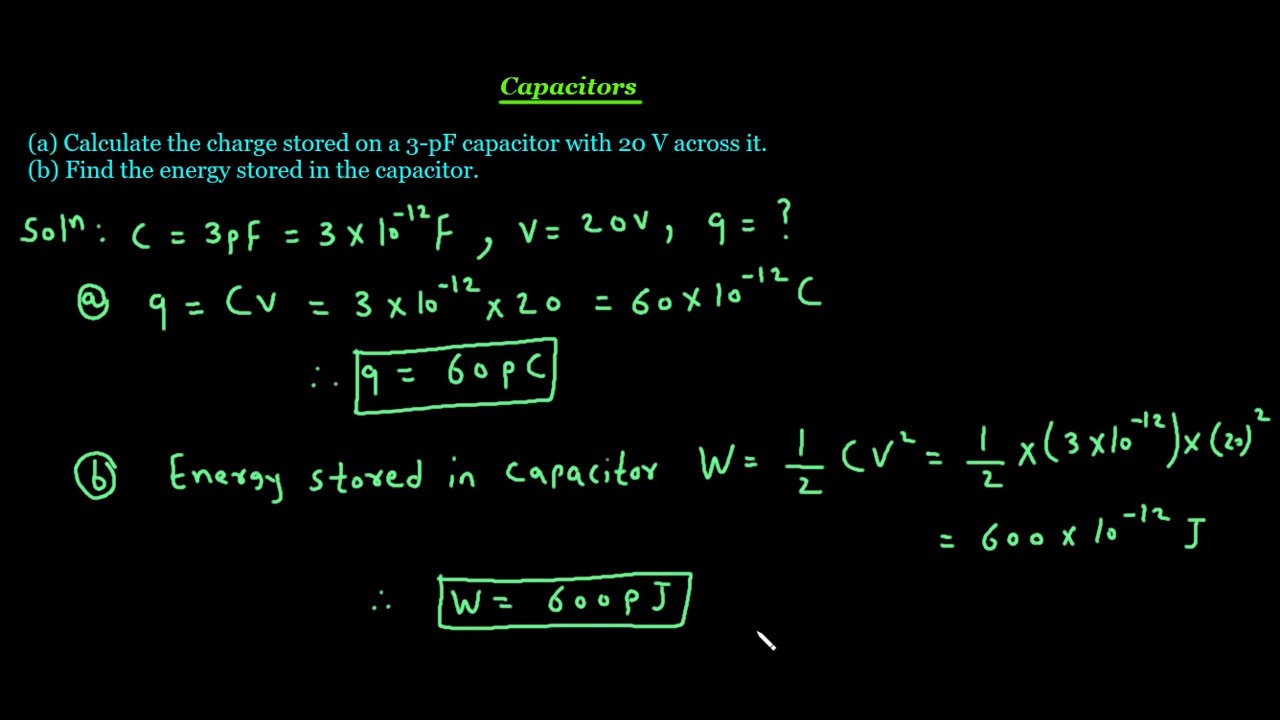 Capacitors
(a) Calculate the charge stored on a 3-pF capacitor with 20 V across it.
(b) Find the energy stored in the capacitor.
Solⁿ: C = 3pF = 3 × 10⁻¹² F, V = 20V, q = ?
ⓐ q = CV = 3 × 10⁻¹² × 20 = 60 × 10⁻¹² C
∴ q = 60 pC
ⓑ Energy stored in capacitor W = 1/2 CV² = 1/2 × (3 × 10⁻¹²) × (20)²
= 600 × 10⁻¹² J
∴ W = 600 pJ